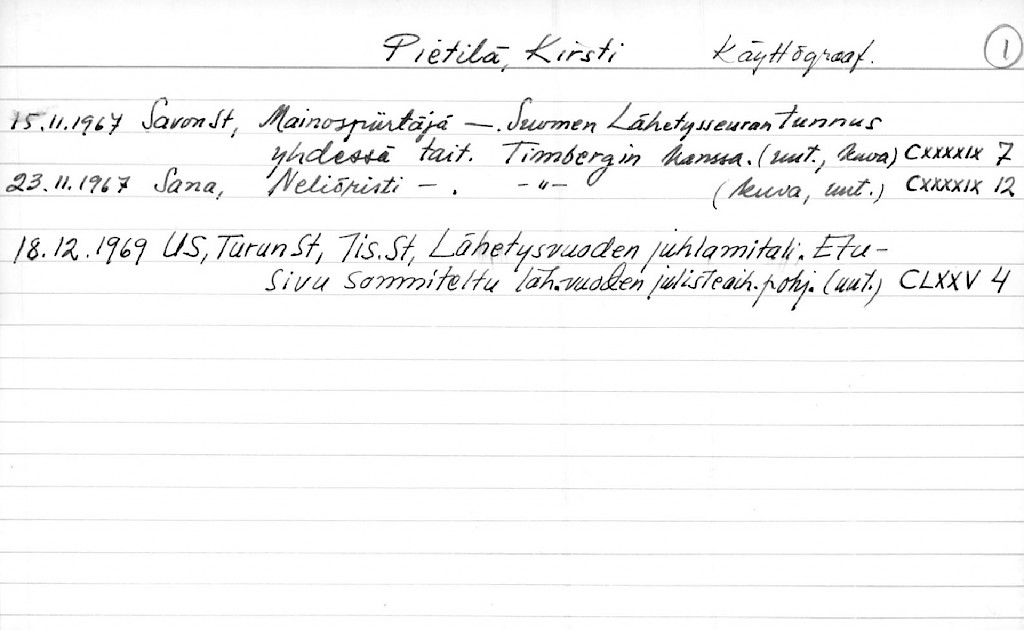 Pietilä, Kirsti Käyttögraaf. 1
15.11.1967 Savon St, Mainospiirtäjä —. Suomen Lähetysseuran Tunnus
yhdessä tait. Timbergin kanssa. (uut., kuva) CXXXXIX 7
23.11.1967 Sana, Neliöristi — . -"- (kuva, uut.) CXXXXIX 12
18.12.1969 US, Turun St, Tis.St, Lähetysvuoden juhlamitali. Etu-
sivu sommiteltu läh.vuoden julisteaih.pohj. (uut.) CLXXV 4